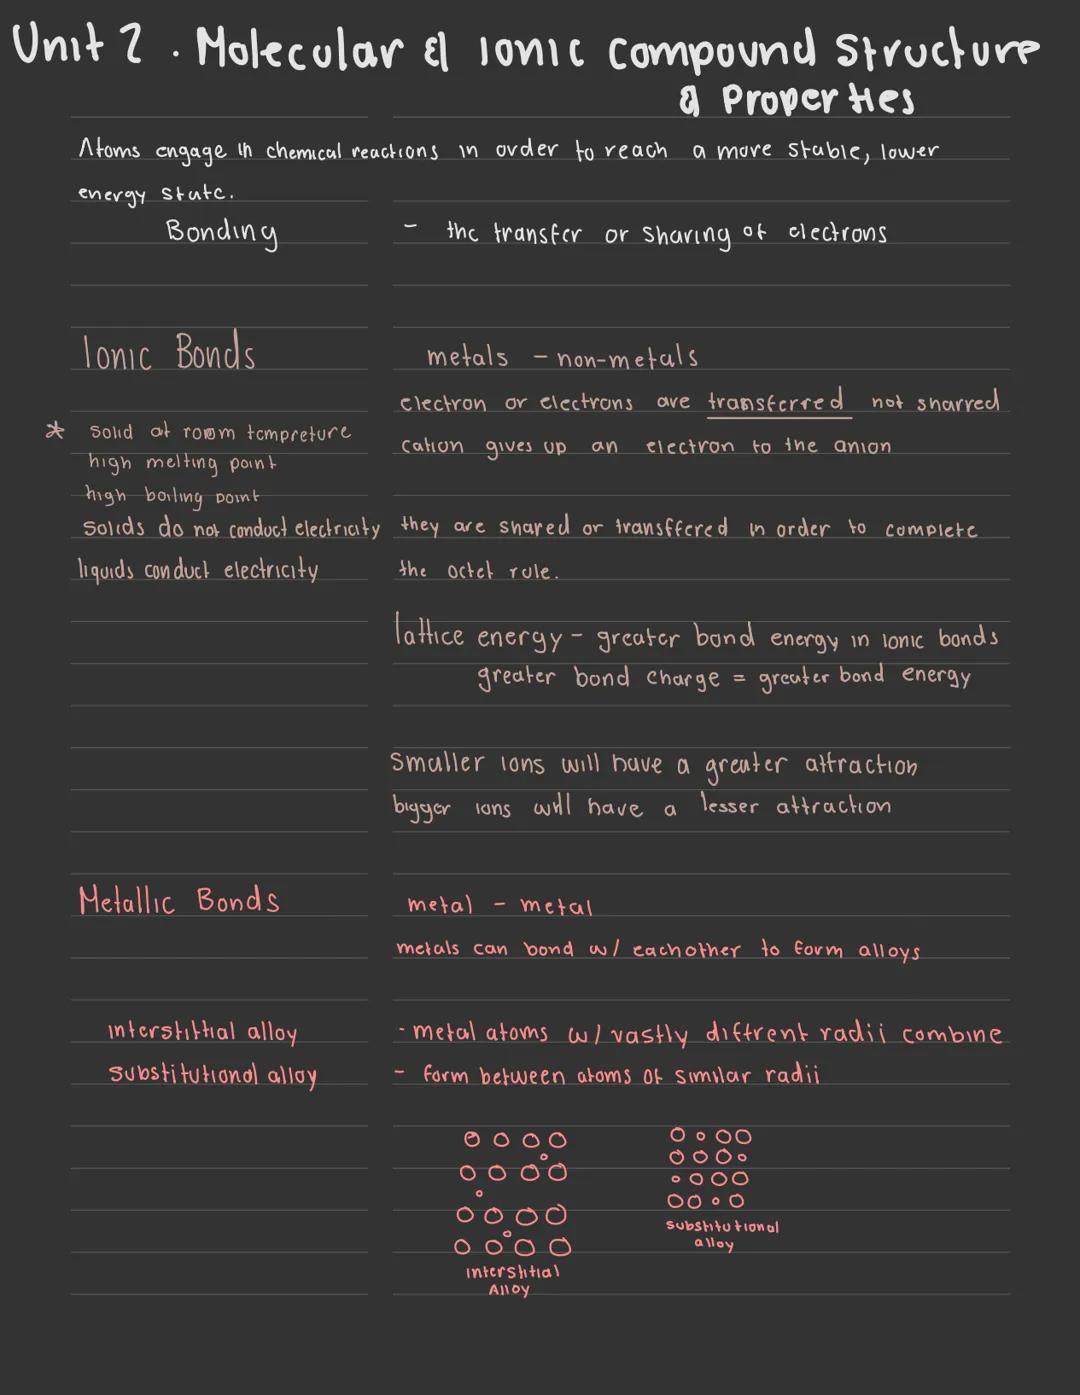 Unit 2 . Molecular & Ionic Compound Structure
& Properties
Atoms engage in chemical reactions in order to reach a more stable, lower
energy state.
Bonding - the transfer or sharing of electrons
Ionic Bonds metals - non-metals
electron or electrons are transferred not sharred
* solid at room tempreture
cation gives up an electron to the anion
high melting point
high boiling point
solids do not conduct electricity they are shared or transffered in order to complete
liquids conduct electricity the octet rule.
lattice energy - greater bond energy in ionic bonds
greater bond charge = greater bond energy
smaller ions will have a greater attraction
bigger ions will have a lesser attraction
Metallic Bonds metal - metal
metals can bond w/ eachother to form alloys
interstittial alloy - metal atoms w/ vastly diffrent radii combine
substitutional alloy - form between atoms of similar radii
substitutional
alloy
interstitial
Alloy